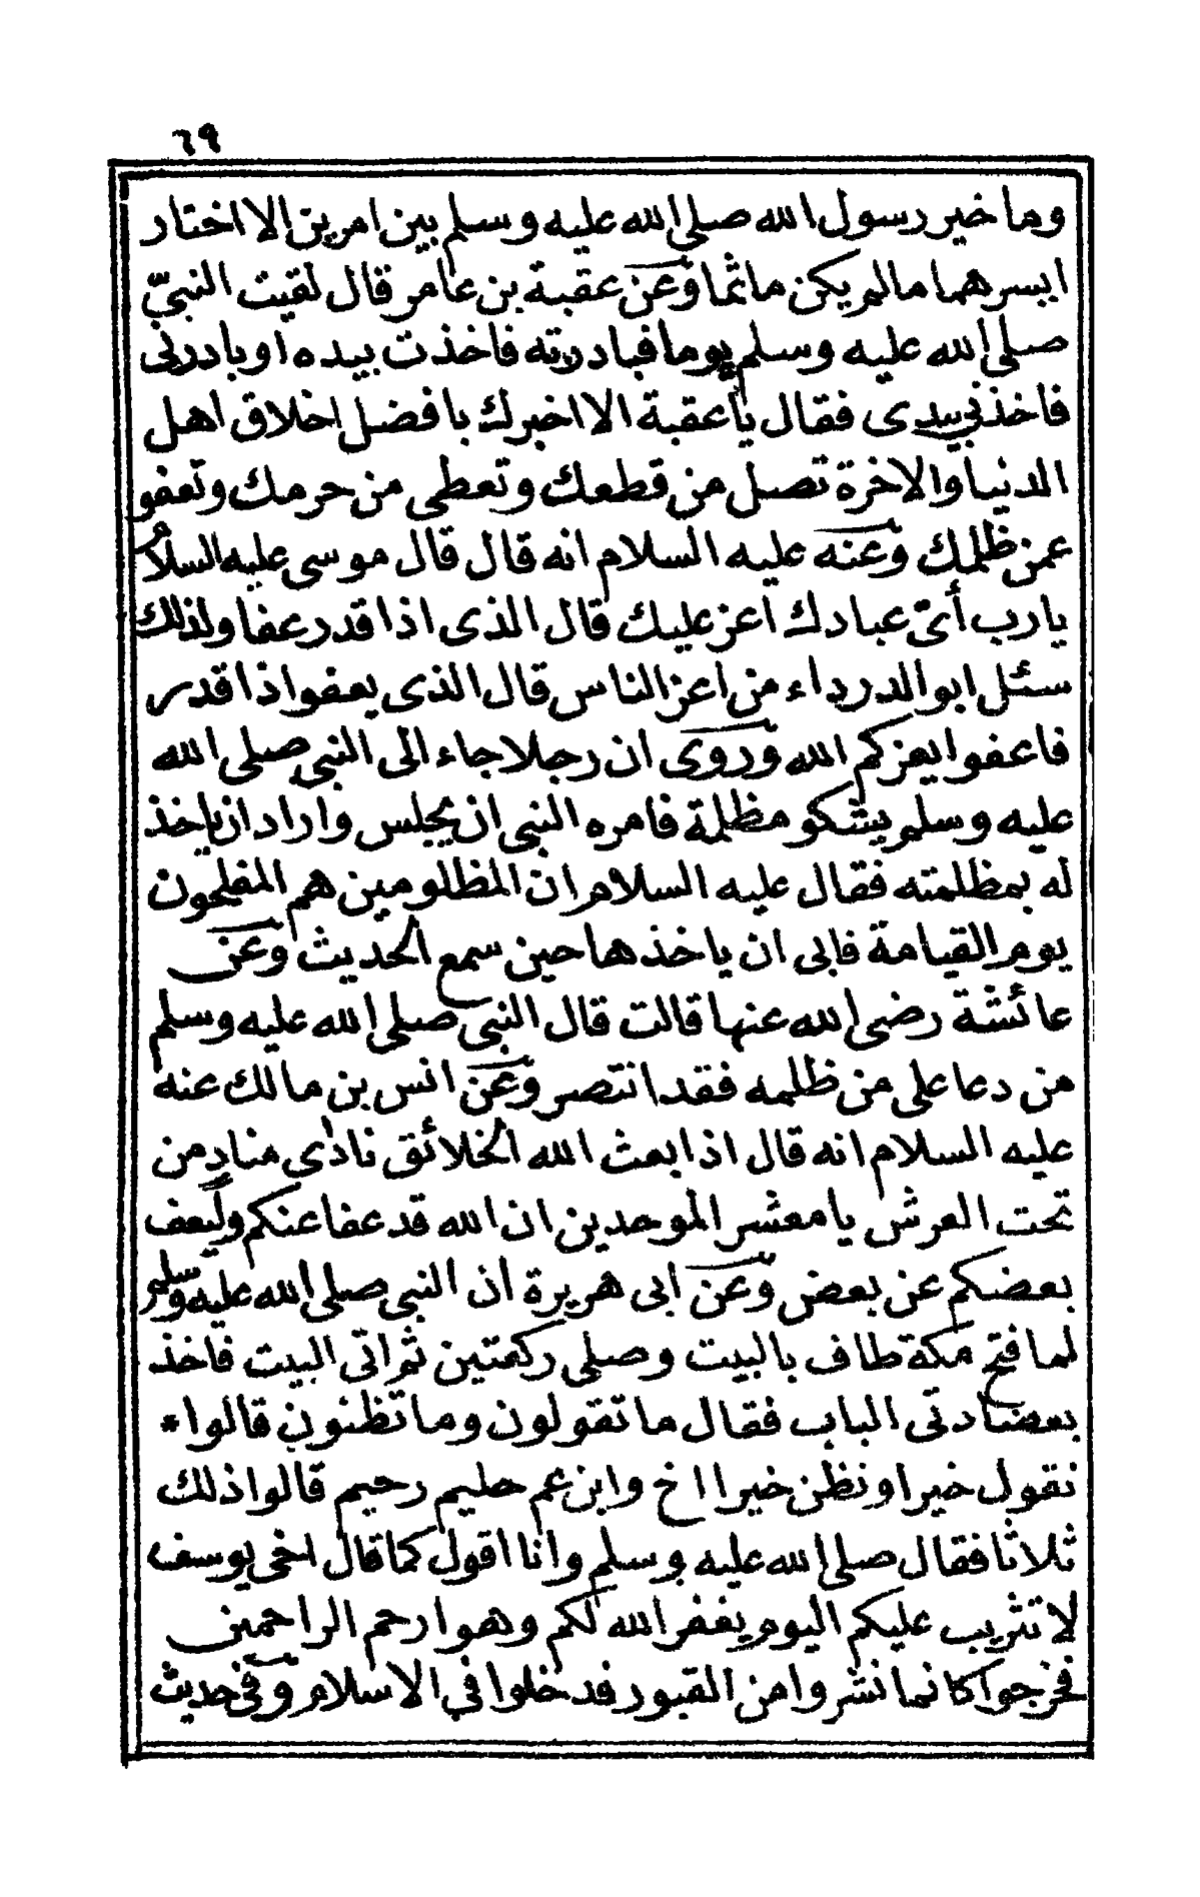 ٦٩
وما خير رسول الله صلى الله عليه وسلم بين امرين الا اختار
ايسرهما مالم يكن ماثما وعن عقبة بن عامر قال لقيت النبيّ
صلى الله عليه وسلم يوما فبادرته فاخذت بيده او بادرنى
فاخذنى بيدى فقال يا عقبة الا اخبرك بافضل اخلاق اهل
الدنيا والاخرة تصل من قطعك وتعطى من حرمك وتعفو
عمن ظلمك وعنه عليه السلام انه قال قال موسى عليه السلام
يا رب أىّ عبادك اعز عليك قال الذى اذا قدر عفا ولذلك
سئل ابو الدرداء من اعز الناس قال الذى يعفو اذا قدر
فاعفوا يعزكم الله وروى ان رجلا جاء الى النبى صلى الله
عليه وسلم يشكو مظلمة فامره النبى ان يجلس واراد ان ياخذ
له بمظلمته فقال عليه السلام ان المظلومين هم المفلحون
يوم القيامة فابى ان ياخذها حين سمع الحديث وعن
عائشة رضى الله عنها قالت قال النبى صلى الله عليه وسلم
من دعا على من ظلمه فقد انتصر وعن انس بن مالك عنه
عليه السلام انه قال اذا بعث الله الخلائق نادى مناد من
تحت العرش يا معشر الموحدين ان الله قد عفا عنكم وليعف
بعضكم عن بعض وعن ابى هريرة ان النبى صلى الله عليه وسلم
لما فتح مكة طاف بالبيت وصلى ركعتين ثم اتى البيت فاخذ
بعضادتى الباب فقال ما تقولون وما تظنون قالوا *
نقول خيرا ونظن خيرا اخ وابن عم حليم رحيم قالوا ذلك
ثلاثا فقال صلى الله عليه وسلم وانا اقول كما قال اخى يوسف
لا تثريب عليكم اليوم يغفر الله لكم وهو ارحم الراحمين
فخرجوا كانما نشروا من القبور فدخلوا في الاسلام وفى حديث